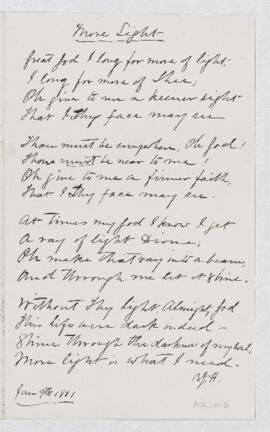 More Light
Great God I long for more of light
I long for more of Thee;
Oh give to me a keener sight
That I Thy face may see
Thou must be everywhere, Oh God!
Thou must be near to me!
Oh give to me a firmer faith,
That I Thy face may see.
At times my God I know I get
A ray of light Divine;
Oh make that ray into a beam,
And through me let it shine.
Without Thy light, Almighty God
This life were dark indeed—
Shine through the darkness of my soul,
More light is what I need.
Jan 9th 1881